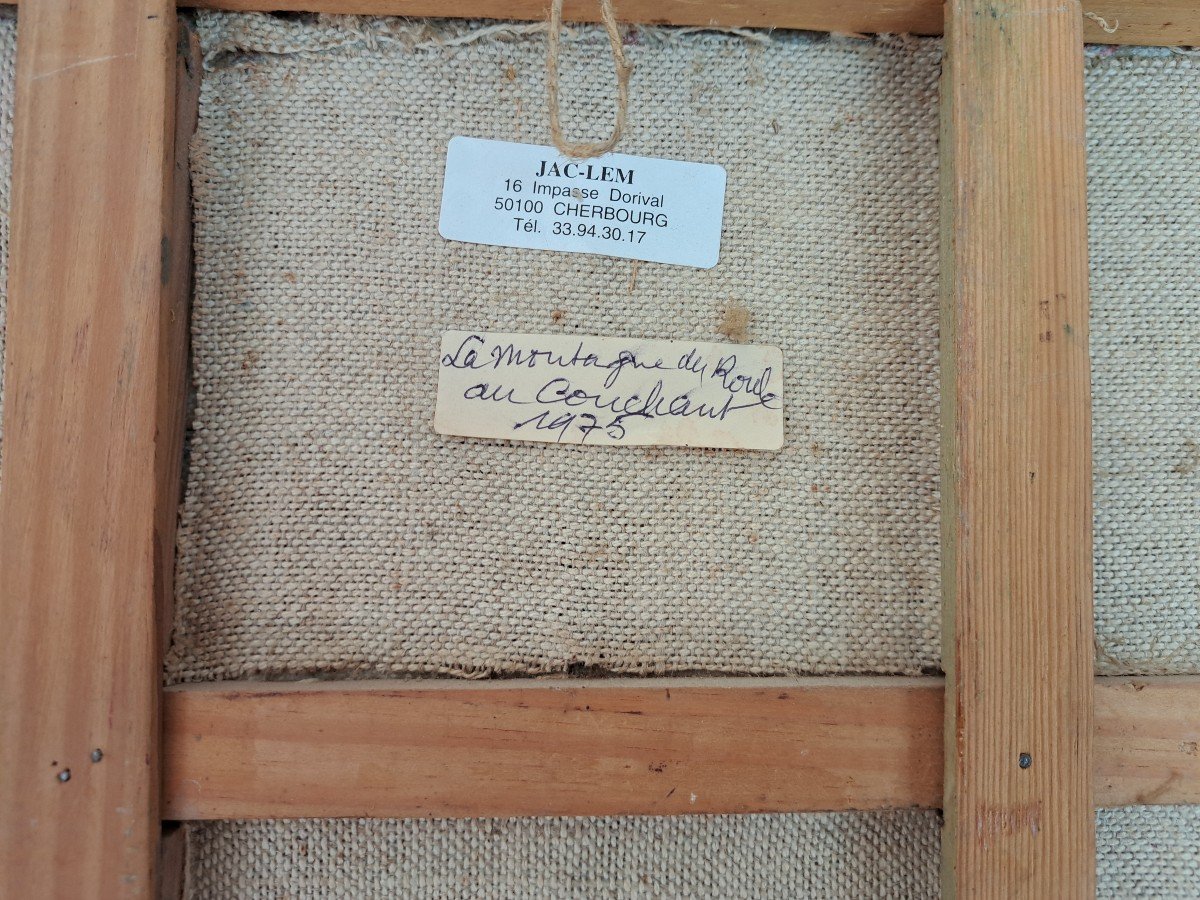 JAC-LEM
16 Impasse Dorival
50100 CHERBOURG
Tél. 33.94.30.17
La Montagne du Roule
au Couchant
1975